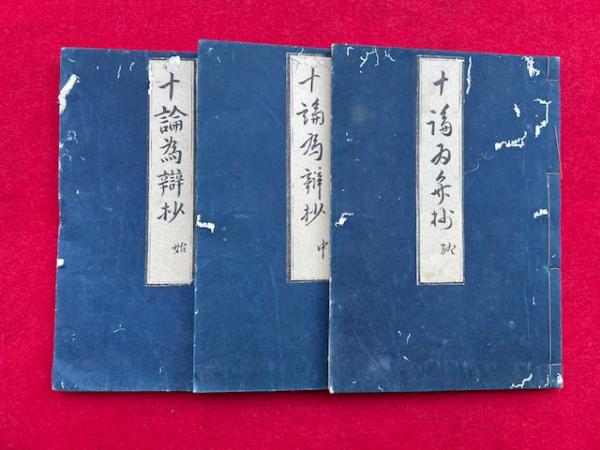 十論為辯抄 始
十論為辨抄 中
十論為弁抄 終